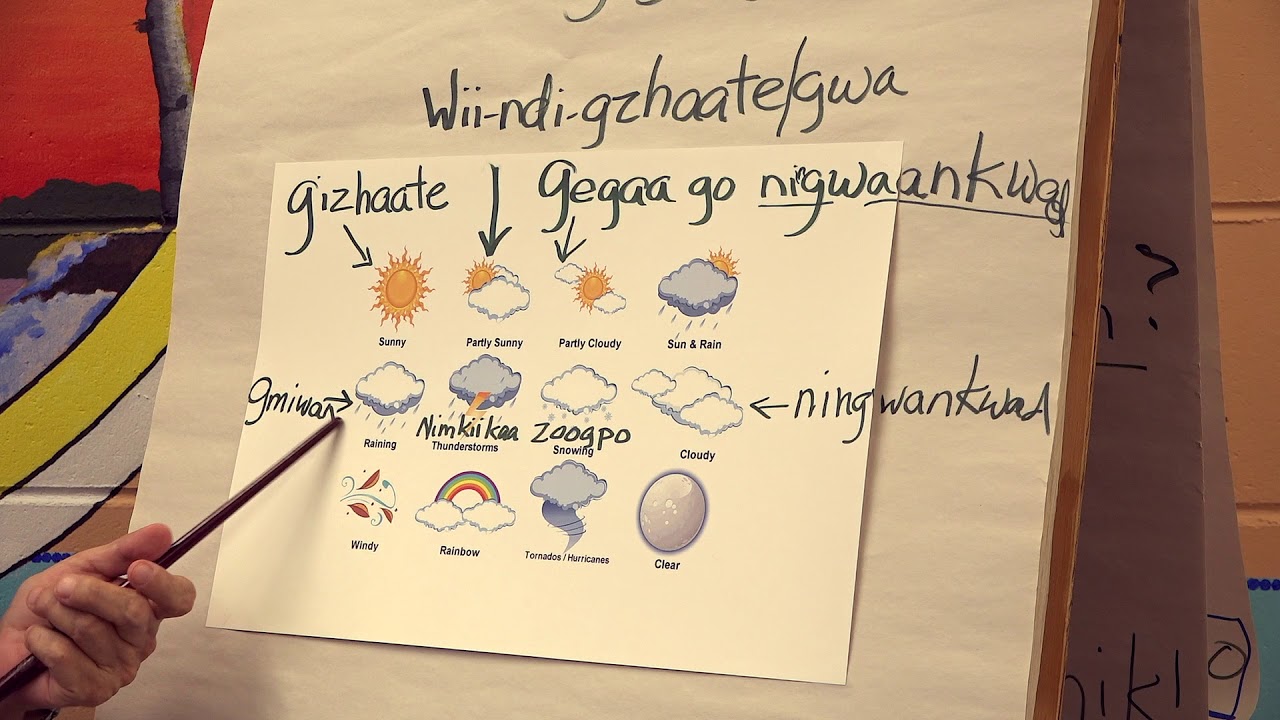 Wii-ndi-gzhaate/gwa
gizhaate
gegaa go ningwaankwad
Sunny
Partly Sunny
Partly Cloudy
Sun & Rain
gmiwan
Nimkiikaa
zoogpo
ningwankwad
Raining
Thunderstorms
Snowing
Cloudy
Windy
Rainbow
Tornados / Hurricanes
Clear